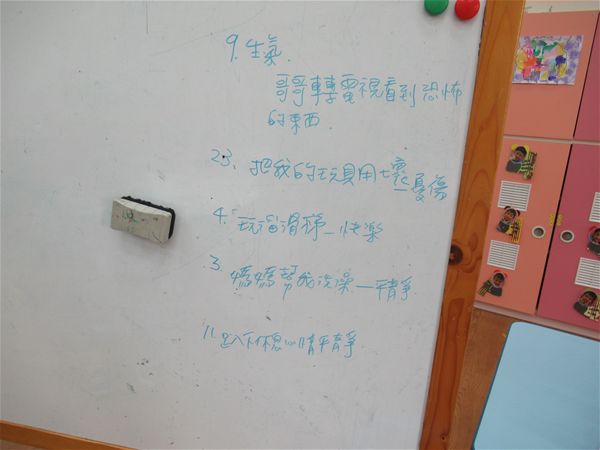 9. 生氣.
哥哥轉電視看到恐怖
的東西.
23. 把我的玩具用壞-憂傷
4. 玩溜滑梯-快樂
3. 媽媽幫我洗澡-平靜
11. 趴下休息心情平靜